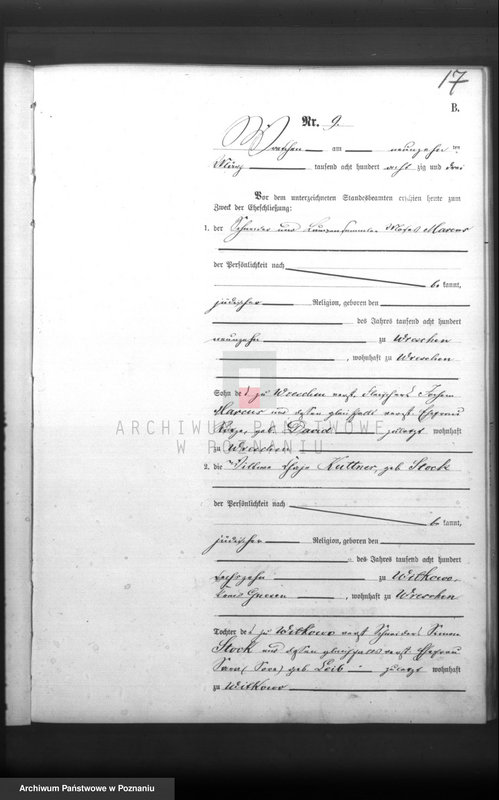 17
B.
Nr. 9.
Wreschen am neunzehn ten
März tausend acht hundert acht zig und drei
Vor dem unterzeichneten Standesbeamten erschien heute zum
Zweck der Eheschließung:
1. der Schneider und Lumpensammler Moses Marcus
der Persönlichkeit nach
be kannt,
jüdischer Religion, geboren den
des Jahres tausend acht hundert
neunzehn zu Wreschen
, wohnhaft zu Wreschen
Sohn des zu Wreschen verst. Fleischers Jochem
Marcus und dessen gleichfalls verst. Ehefrau
geb. David zuletzt wohnhaft
zu Wreschen
2. die Wittwe Chaje Kuttner, geb Stock
der Persönlichkeit nach
be kannt,
jüdischer Religion, geboren den
des Jahres tausend acht hundert
sechszehn zu Witkowo,
Kreis Gnesen , wohnhaft zu Wreschen
Tochter des zu Witkowo verst Schneiders Simon
Stock und dessen gleichfalls verst. Ehefrau
Sara (Sore) geb Leib zuletzt wohnhaft
zu Witkowo
ARCHIWUM PAŃSTWOWE
W POZNANIU
Archiwum Państwowe w Poznaniu